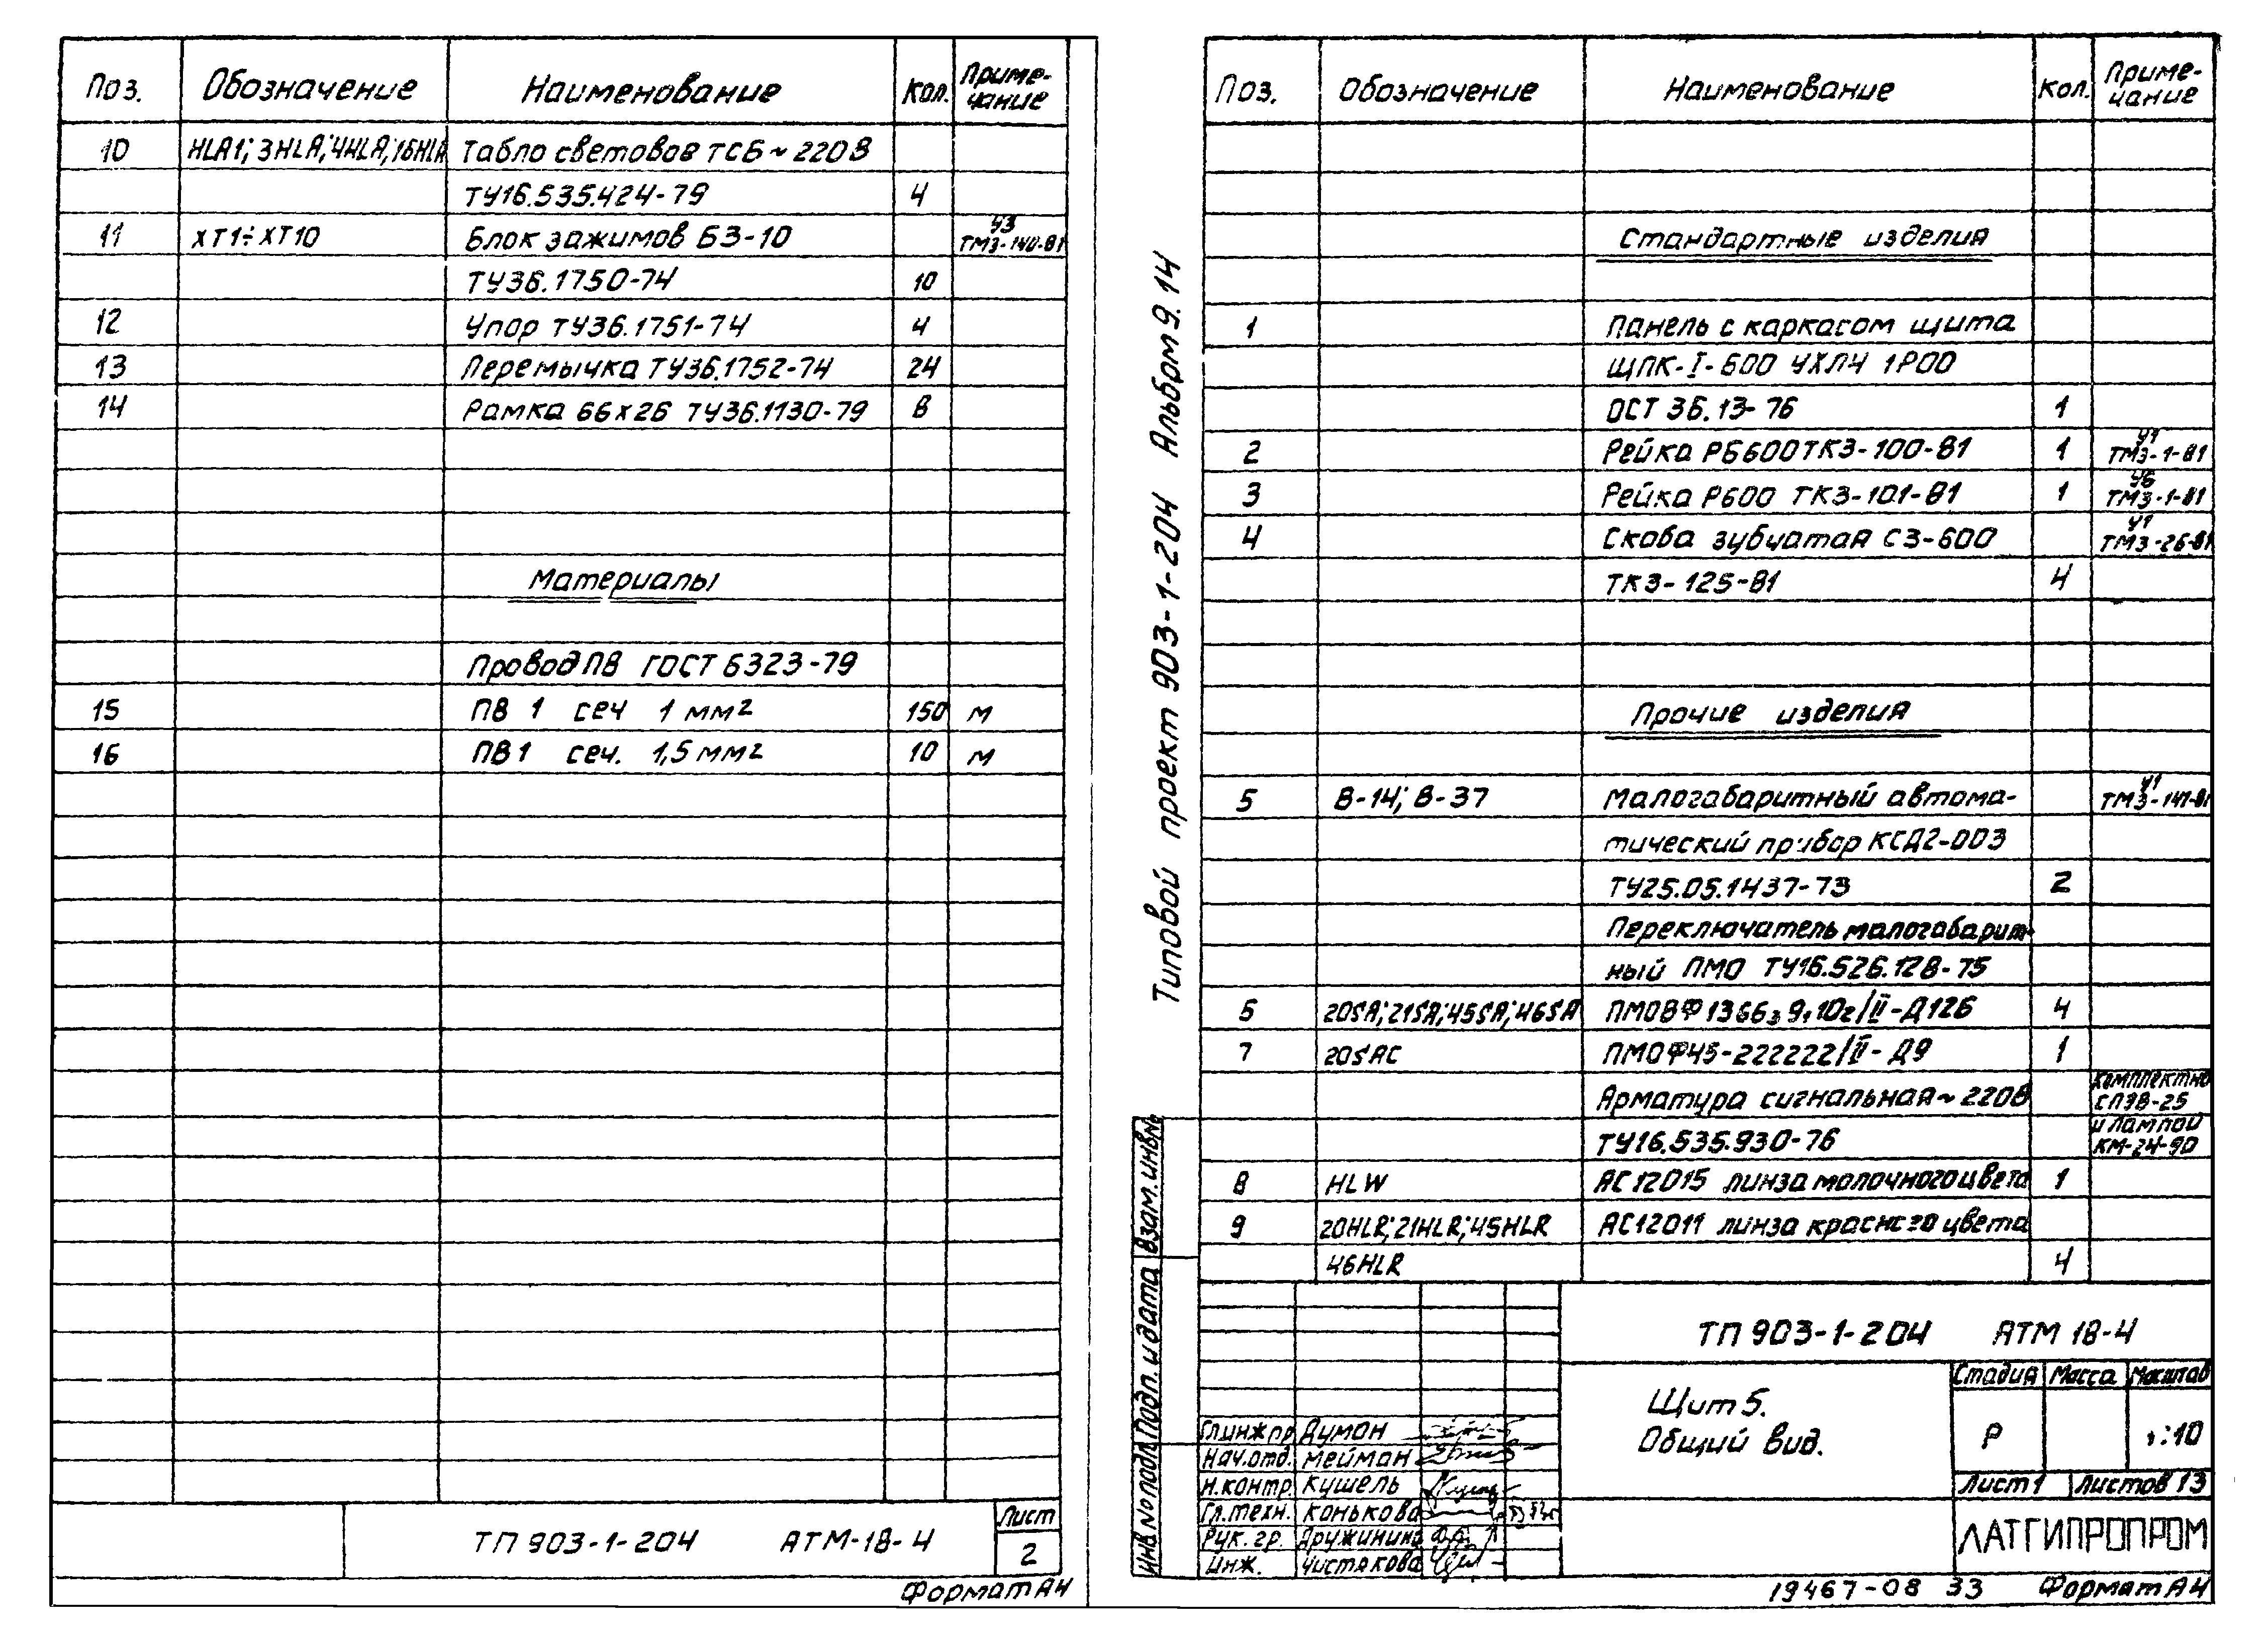 Поз. Обозначение Наименование Кол. Приме-
чание
10 HLA1; 3HLA; 4HLA; 16HLA Табло световое ТСБ ~ 220В
ТУ16.535.424-79 4
11 ХТ1÷ХТ10 Блок зажимов БЗ-10 У3
ТМ3-140-81
ТУ36.1750-74 10
12 Упор ТУ36.1751-74 4
13 Перемычка ТУ36.1752-74 24
14 Рамка 66х26 ТУ36.1130-79 8
Материалы
Провод ПВ ГОСТ 6323-79
15 ПВ 1 сеч 1 мм2 150 м
16 ПВ1 сеч. 1,5 мм2 10 м
ТП 903-1-204 АТМ-18-4 Лист
2
Формат А4
Типовой проект 903-1-204 Альбом 9.14
Поз. Обозначение Наименование Кол. Приме-
чание
Стандартные изделия
1 Панель с каркасом щита
ЩПК-I-600 УХЛ4 IP00
ОСТ 36.13-76 1
2 Рейка РБ600ТК3-100-81 1 У1
ТМ3-1-81
3 Рейка Р600 ТК3-101-81 1 У6
ТМ3-1-81
4 Скоба зубчатая СЗ-600 У1
ТМ3-26-81
ТК3-125-81 4
Прочие изделия
5 8-14; 8-37 Малогабаритный автома- У1
ТМ3-141-81
тический прибор КСД2-003
ТУ25.05.1437-73 2
Переключатель малогабарит-
ный ПМО ТУ16.526.128-75
6 20SA; 21SA; 45SA; 46SA 4
7 20SAC ПМОФ45-222222/II-Д9 1
Арматура сигнальная ~ 220В комплектно
СПЭВ-25
ТУ16.535.930-76 и лампой
КМ-24-90
8 HLW АС12015 линза молочного цвета 1
9 20HLR; 21HLR; 45HLR АС12011 линза красного цвета
46HLR 4
Инв.№ подл. Подп. и дата Взам.инв.№
ТП 903-1-204 АТМ 18-4
Щит 5.
Общий вид.
Стадия Масса Масштаб
Р 1:10
Лист 1 Листов 13
ЛАТГИПРОПРОМ
Гл.инж.пр. Думан
Нач.отд. Мейман
Н.контр. Кушель
Гл.техн. Конькова
Рук.гр. Дружинина
Инж. Чистякова
19467-08 33 Формат А4